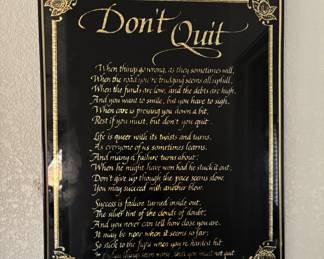 Don't Quit
When things go wrong, as they sometimes will,
When the road you're trudging seems all uphill,
When the funds are low, and the debts are high,
And you want to smile, but you have to sigh,
When care is pressing you down a bit,
Rest if you must, but don't you quit.
Life is queer with its twists and turns,
As everyone of us sometimes learns,
And many a failure turns about,
When he might have won had he stuck it out.
Don't give up though the pace seems slow
You may succeed with another blow.
Success is failure turned inside out,
The silver tint of the clouds of doubt,
And you never can tell how close you are,
It may be near when it seems so far;
So stick to the fight when you're hardest hit,
seem worst, that you must not quit.